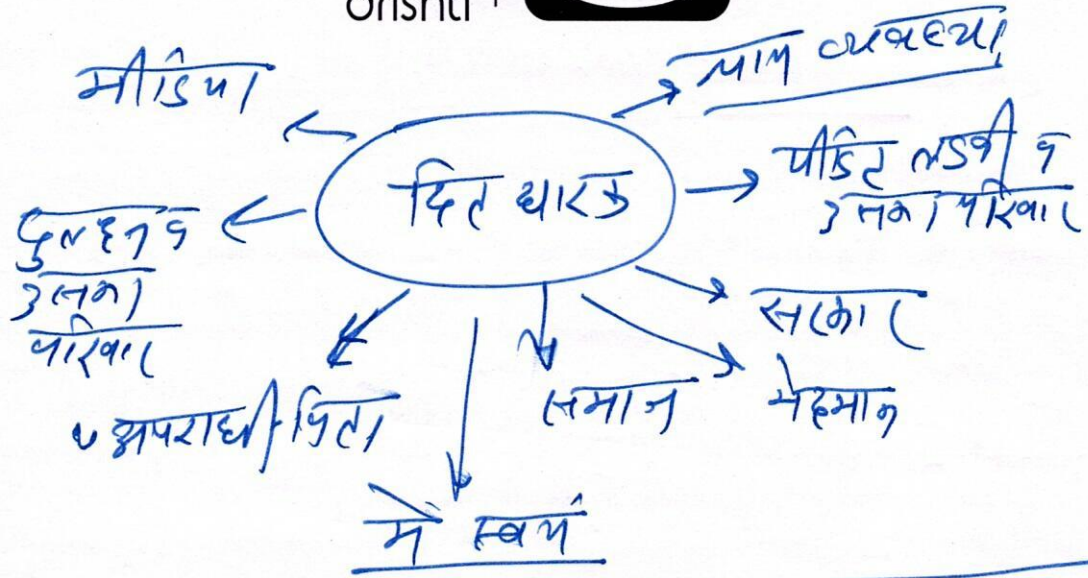 drishti
मीडिया
न्याय व्यवस्था
हित धारक
पीडित लडकी व
उसका परिवार
दुल्हन व
उसका
परिवार
सरकार
मेहमान
समाज
अपराधी पिता
मैं स्वयं